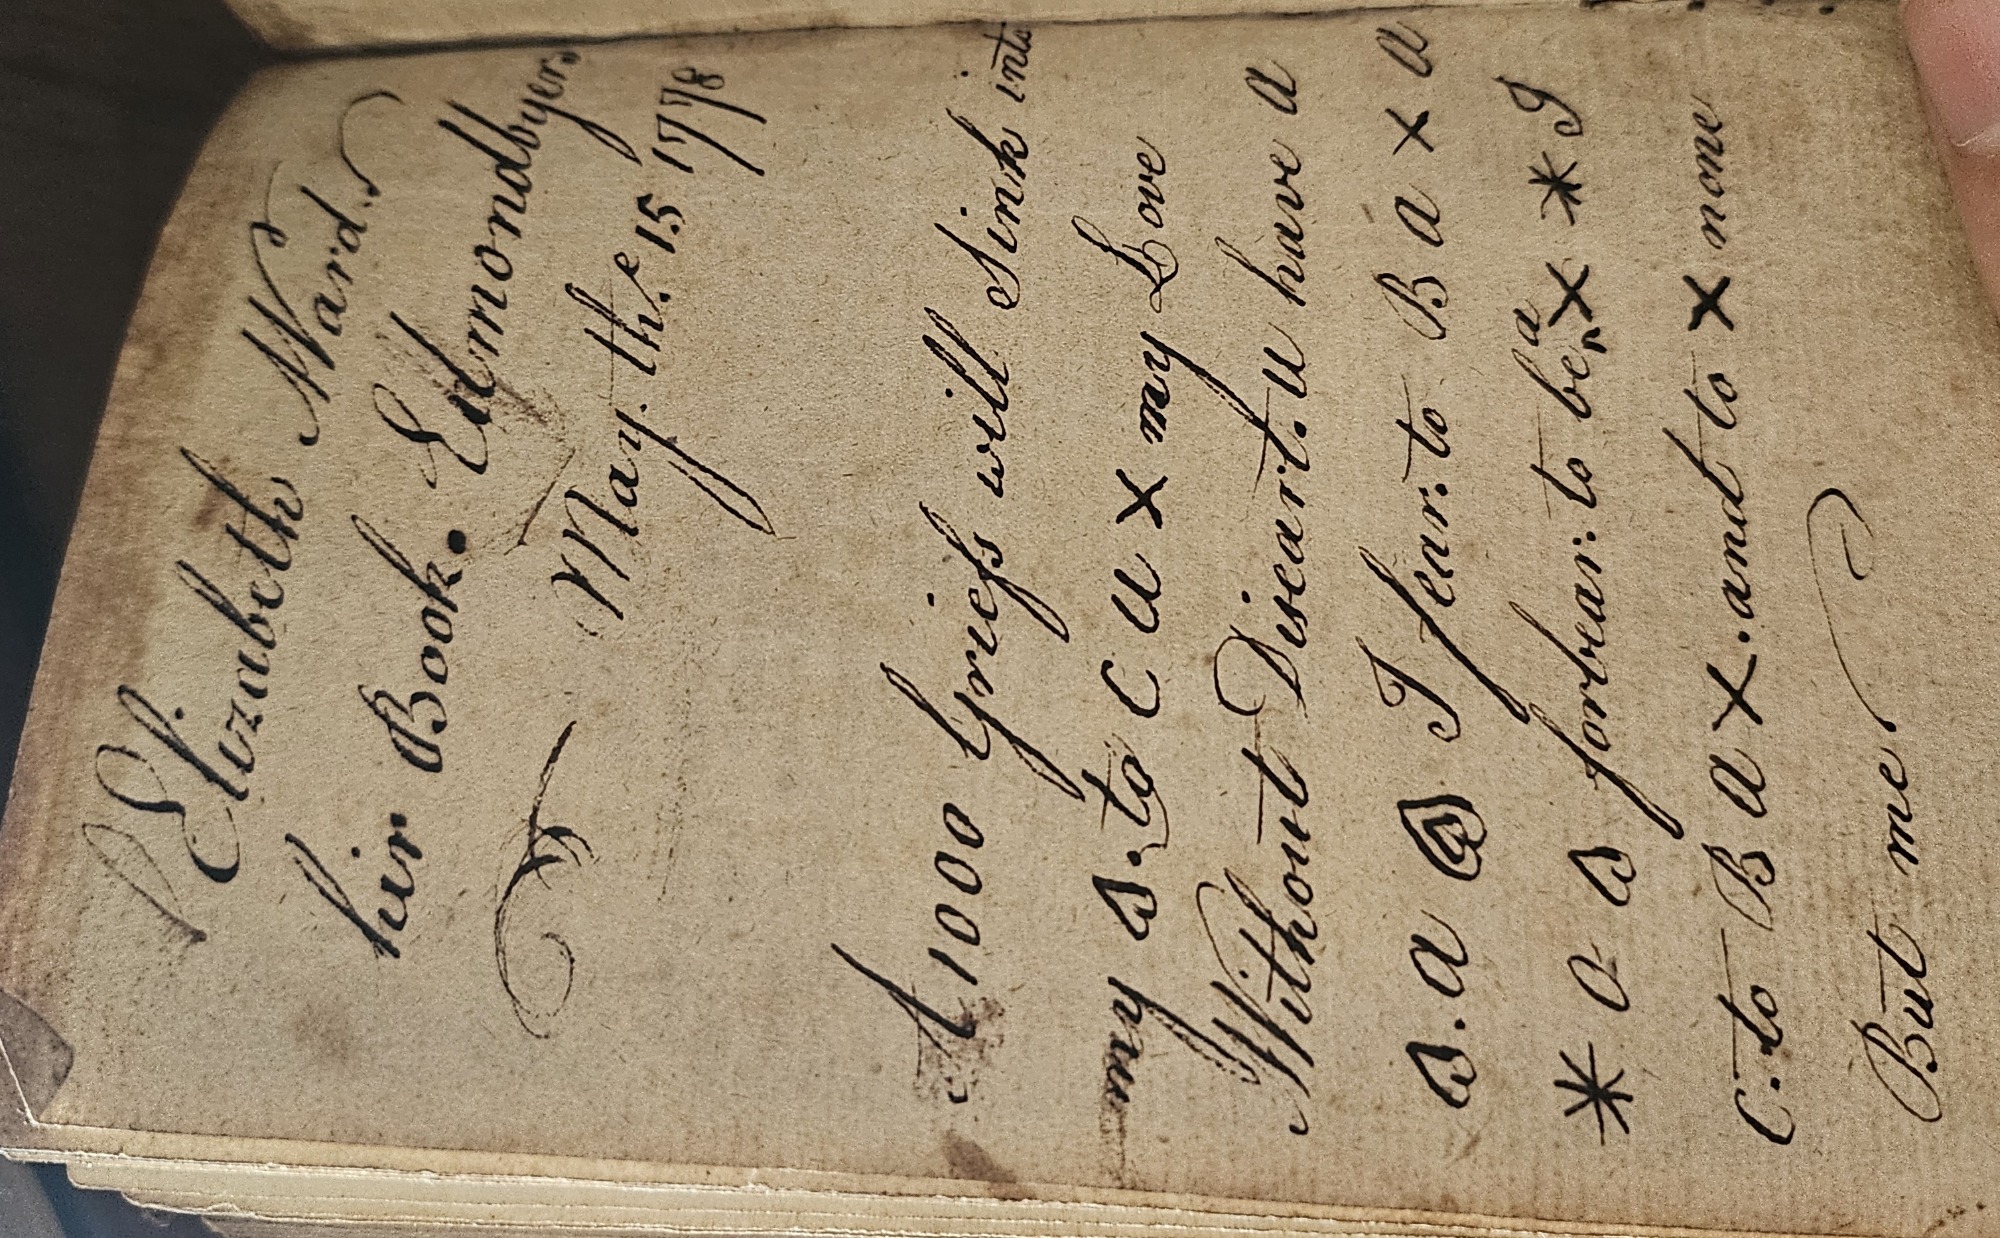 Elizabeth Ward.
hir Book. Edmondbyers
May. the. 15 1778
A 1000 Griefs will Sink into
my ♤. to C u x my Love
Without Diseart. u have a
♤. a ♤ I fear. to B a x a
* a ♤ forbear: to be^a x * I
C. to B a x. and to x none
But me.